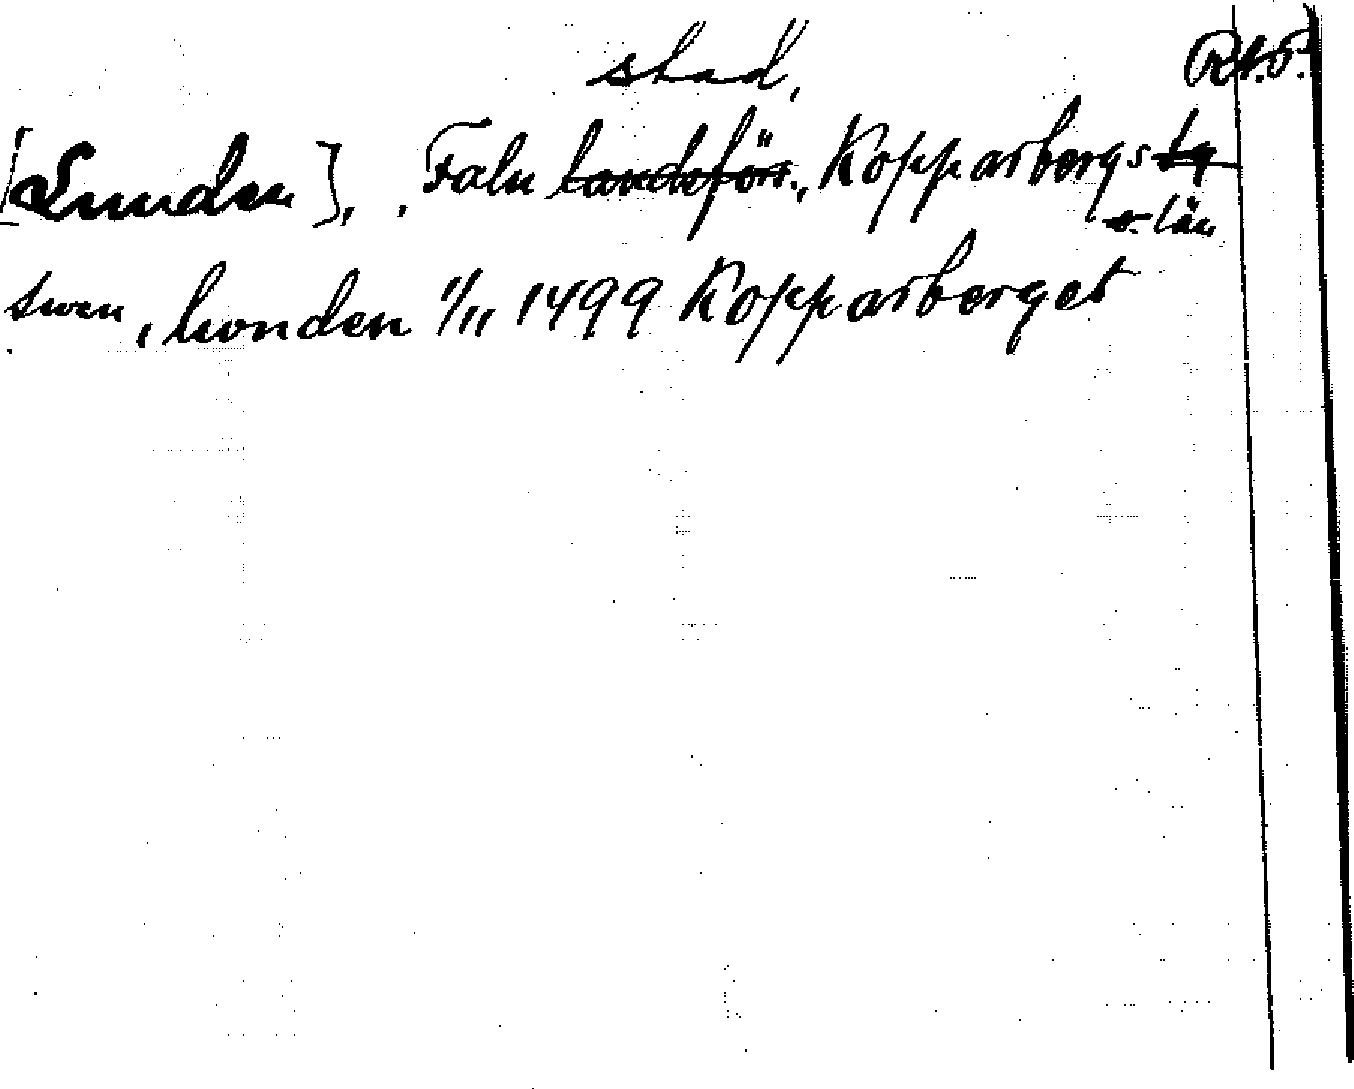 stad,
[Lunden], , Falu landsförs., Kopparbergs
s. län
swen , lunden 1/11 1499 Kopparberget